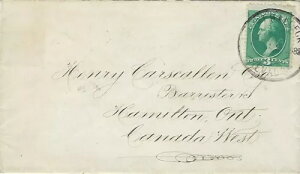 Henry Carscallen
Barrister &c
Hamilton, Ont.
Canada West
3